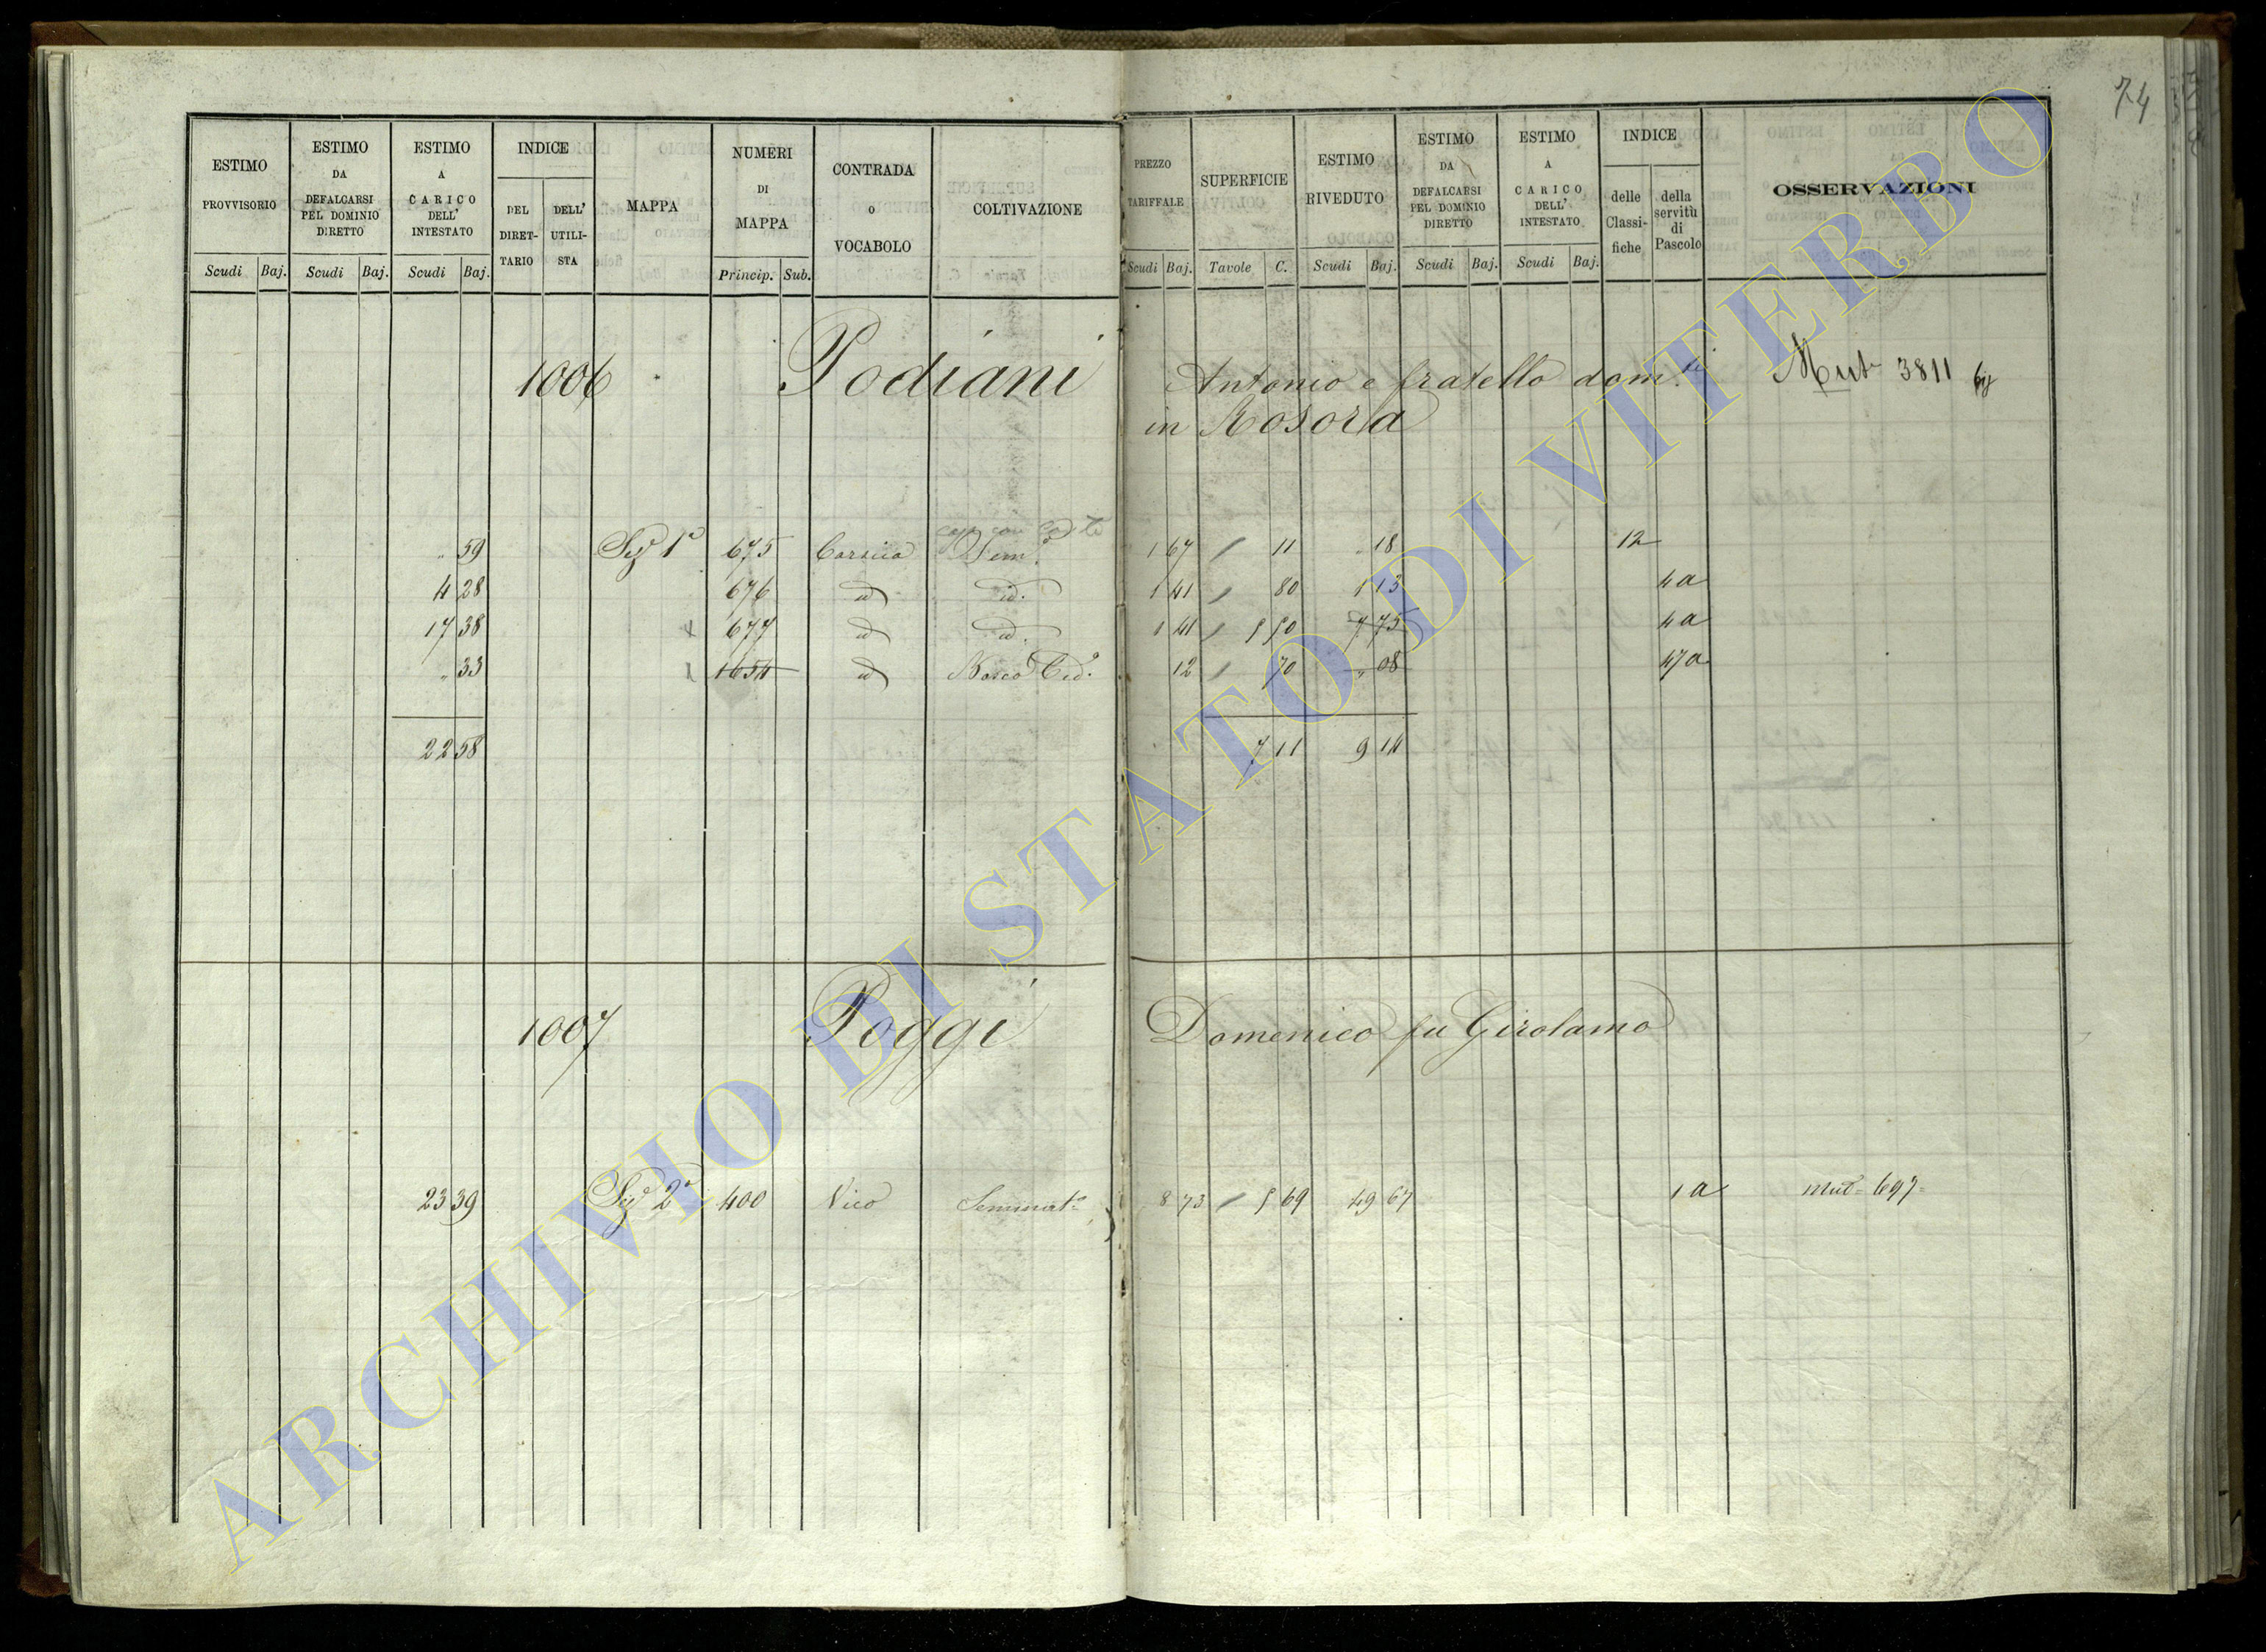 74
ESTIMO PROVVISORIO
ESTIMO DA DEFALCARSI PEL DOMINIO DIRETTO
ESTIMO A CARICO DELL' INTESTATO
INDICE
DEL DIRET-TARIO
DELL' UTILI-STA
MAPPA
NUMERI DI MAPPA
CONTRADA O VOCABOLO
COLTIVAZIONE
PREZZO TARIFFALE
SUPERFICIE
ESTIMO RIVEDUTO
ESTIMO DA DEFALCARSI PEL DOMINIO DIRETTO
ESTIMO A CARICO DELL' INTESTATO
INDICE
delle Classi-fiche
della servitù di Pascolo
OSSERVAZIONI
Scudi Baj. Scudi Baj. Scudi Baj. Princip. Sub. Scudi Baj. Tavole C. Scudi Baj. Scudi Baj. Scudi Baj.
1006 Podiani Antonio e fratello dom.ti Mut 3811
in Rosora
" 59 Sez 1a 675 Sem.o 1 67 / 11 " 18 12
4 28 676 id id. 1 41 / 80 1 13 4a
17 38 x 677 id id. 1 41 / 5 50 7 75 4a
" 33 1654 id Bosco Ced.o 12 / 70 " 08 47a
22 58 7 11 9 14
1007 Poggi Domenico fu Girolamo
23 39 Sez 2a 400 Vico Seminat.o 8 73 / 5 69 49 67 1a Mut= 697=
ARCHIVIO DI STATO DI VITERBO